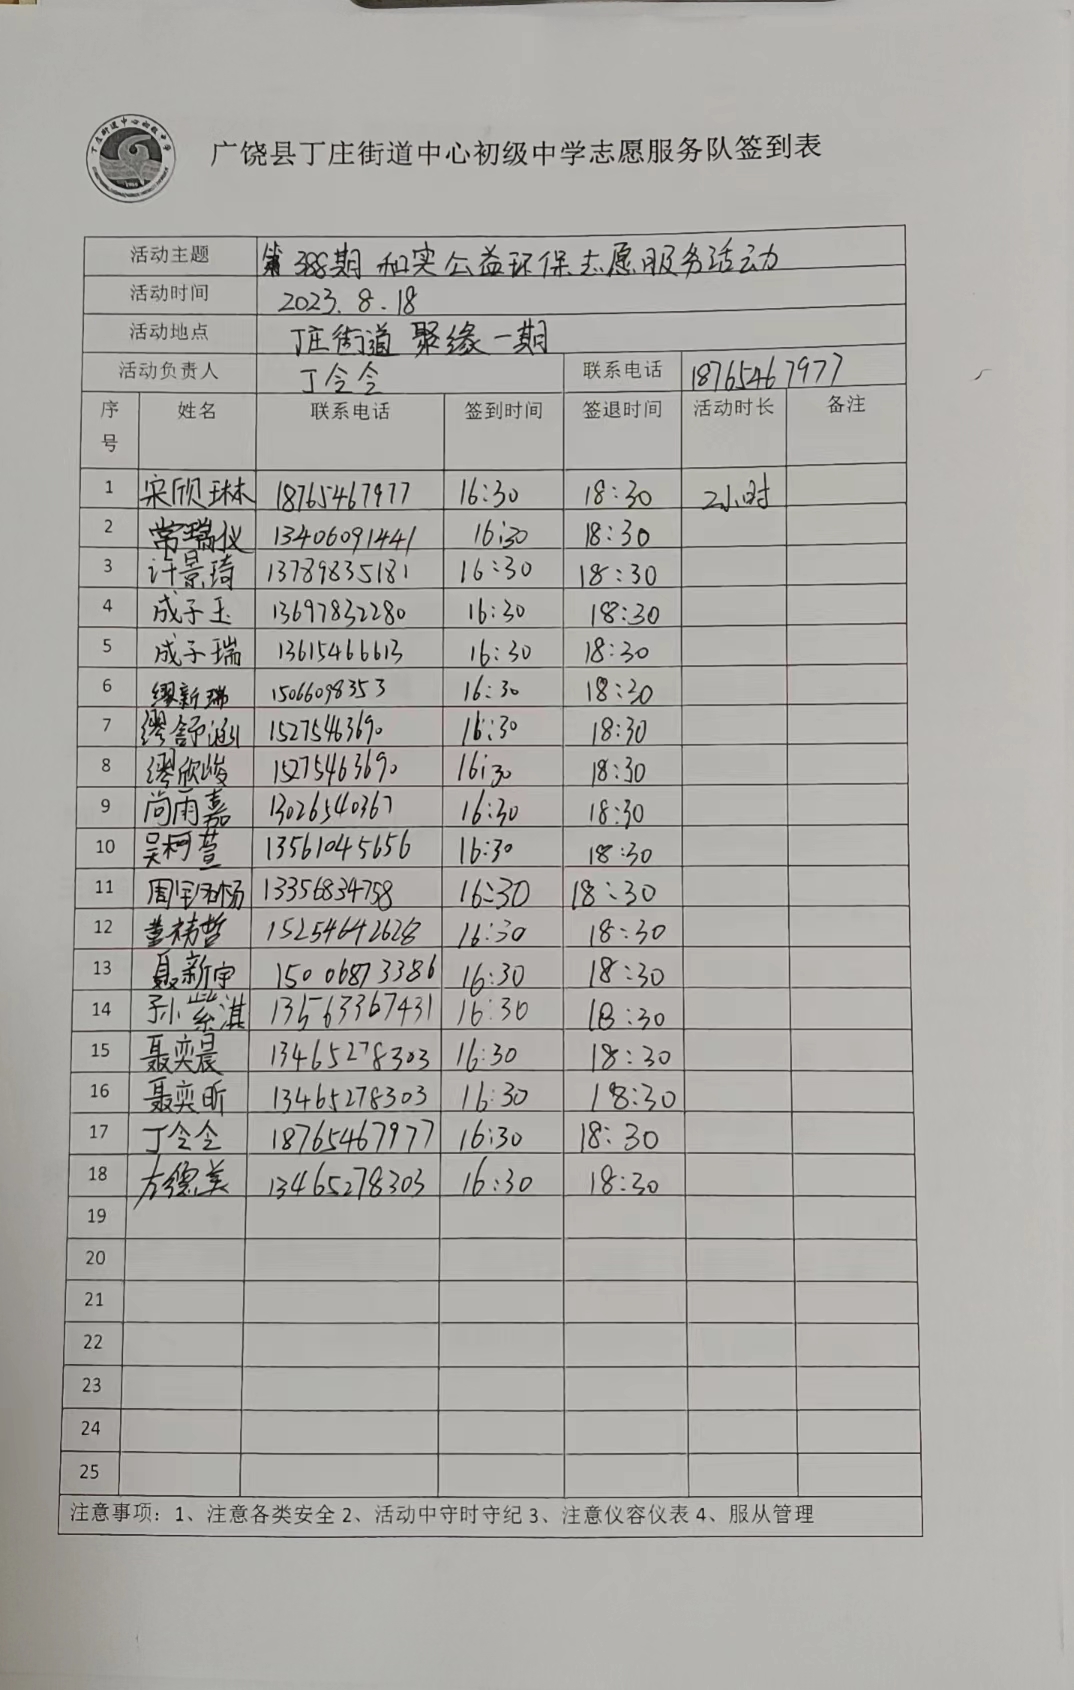 广饶县丁庄街道中心初级中学志愿服务队签到表
活动主题 第388期 和实公益环保志愿服务活动
活动时间 2023.8.18
活动地点 丁庄街道 聚缘一期
活动负责人 丁令令 联系电话 18765467977
序号 姓名 联系电话 签到时间 签退时间 活动时长 备注
1 宋欣琳 18765467977 16:30 18:30 2小时
2 常瑞仪 13406091441 16:30 18:30
3 许景琦 13789835181 16:30 18:30
4 成子玉 13697832280 16:30 18:30
5 成子瑞 13615466613 16:30 18:30
6 缪新瑞 15066098353 16:30 18:30
7 缪舒涵 15275463690 16:30 18:30
8 缪欣峻 15275463690 16:30 18:30
9 尚雨嘉 13026540367 16:30 18:30
10 吴柯萱 13561045656 16:30 18:30
11 13356834758 16:30 18:30
12 董祎哲 15254642628 16:30 18:30
13 聂新宇 15006873386 16:30 18:30
14 孙紫淇 13563367431 16:30 18:30
15 聂奕晨 13465278303 16:30 18:30
16 聂奕昕 13465278303 16:30 18:30
17 丁令令 18765467977 16:30 18:30
18 左德美 13465278303 16:30 18:30
19
20
21
22
23
24
25
注意事项：1、注意各类安全 2、活动中守时守纪 3、注意仪容仪表 4、服从管理